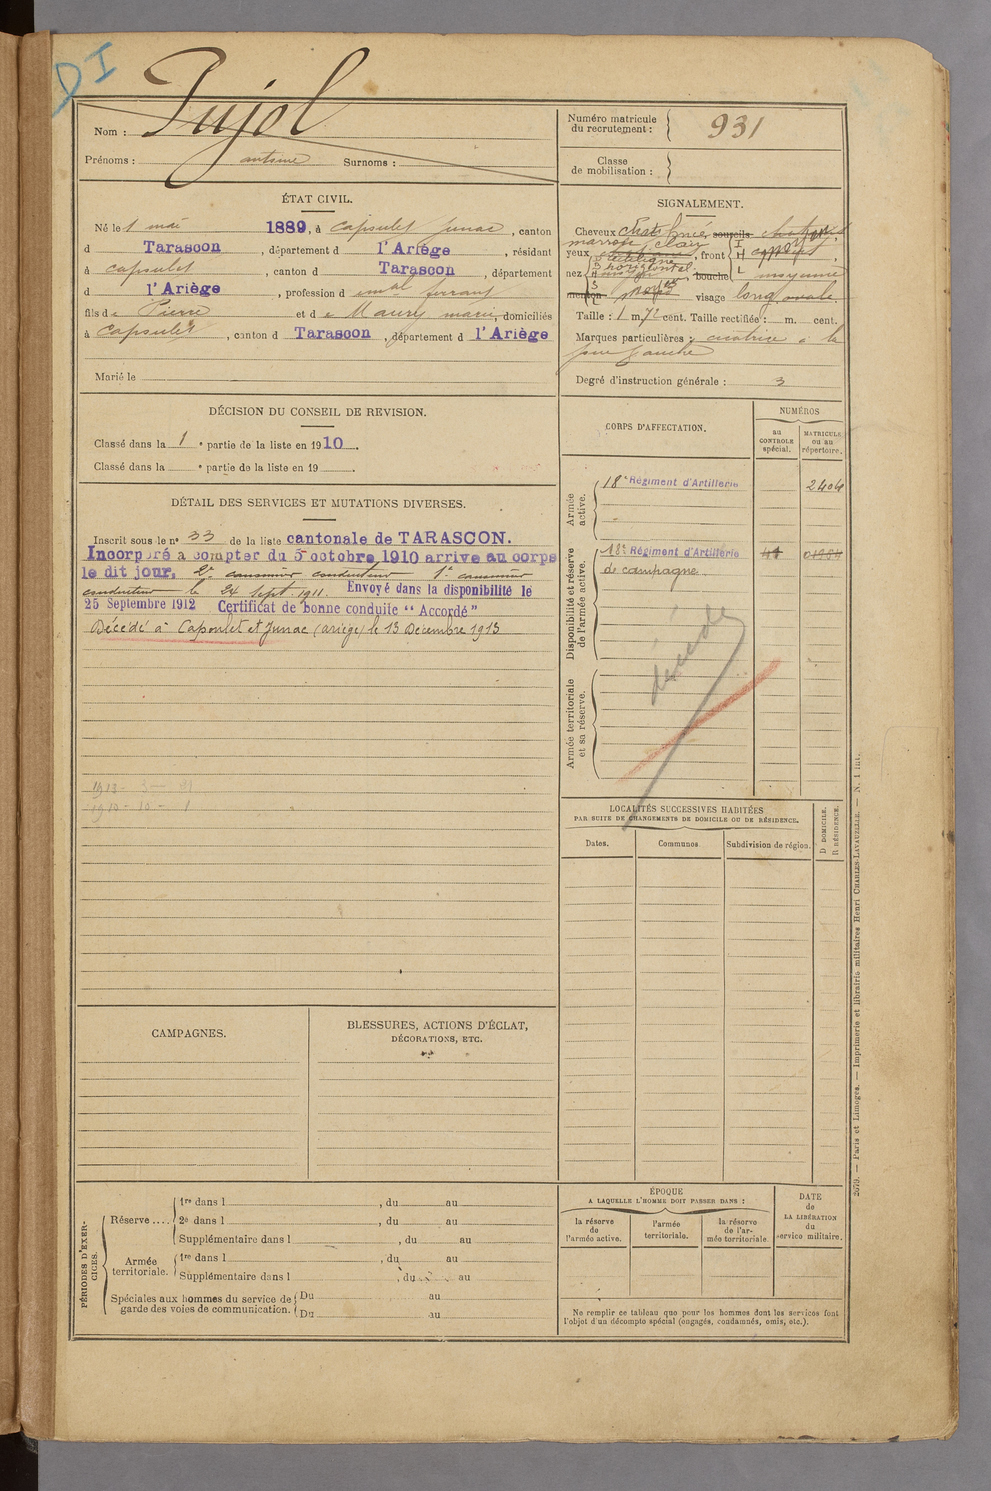 DI
Nom : Pujol
Prénoms : antoine Surnoms :
Numéro matricule du recrutement : 931
Classe de mobilisation :
ÉTAT CIVIL.
Né le 1 mai 1889, à Capoulet Junac, canton
d Tarascon, département d l'Ariège, résidant
à capoulet, canton d Tarascon, département
d l'Ariège, profession d
fils de Pierre et de Maury marie, domiciliés
à Capoulet, canton d Tarascon, département d l'Ariège
Marié le
SIGNALEMENT.
Cheveux chat foncé, sourcils
marron clair
yeux , front
nez horizontal bouche moyenne
menton visage long ovale
Taille : 1 m. 72 cent. Taille rectifiée : m. cent.
Marques particulières : cicatrice à la
joue gauche
Degré d'instruction générale : 3
DÉCISION DU CONSEIL DE REVISION.
Classé dans la 1 e partie de la liste en 1910.
Classé dans la e partie de la liste en 19 .
DÉTAIL DES SERVICES ET MUTATIONS DIVERSES.
Inscrit sous le no 33 de la liste cantonale de TARASCON.
Incorporé à compter du 5 octobre 1910 arrive au corps
le dit jour, 2e canonnier conducteur 1e canonnier
conducteur le 24 sept. 1911. Envoyé dans la disponibilité le
25 Septembre 1912 Certificat de bonne conduite "Accordé"
Décédé à Capoulet et Junac (ariège) le 13 Décembre 1913
CORPS D'AFFECTATION.
NUMÉROS
au CONTROLE spécial.
MATRICULE ou au répertoire.
Armée active.
18e Régiment d'Artillerie 2404
Disponibilité et réserve de l'armée active.
18e Régiment d'Artillerie
de campagne
décédé
Armée territoriale et sa réserve.
LOCALITÉS SUCCESSIVES HABITÉES
PAR SUITE DE CHANGEMENTS DE DOMICILE OU DE RÉSIDENCE.
Dates. Communes. Subdivision de région.
D DOMICILE.
R RÉSIDENCE.
CAMPAGNES.
BLESSURES, ACTIONS D'ÉCLAT,
DÉCORATIONS, ETC.
PÉRIODES D'EXERCICES.
Réserve....
1re dans l , du au
2e dans l , du au
Supplémentaire dans l , du au
Armée territoriale.
1re dans l , du au
Supplémentaire dans l , du au
Spéciales aux hommes du service de garde des voies de communication.
Du au
Du au
ÉPOQUE
A LAQUELLE L'HOMME DOIT PASSER DANS :
la réserve de l'armée active.
l'armée territoriale.
la réserve de l'armée territoriale.
DATE
de
LA LIBÉRATION
du
service militaire.
Ne remplir ce tableau que pour les hommes dont les services font
l'objet d'un décompte spécial (engagés, condamnés, omis, etc.).
2079. — Paris et Limoges. — Imprimerie et librairie militaires Henri CHARLES-LAVAUZELLE. — N. 1 int.